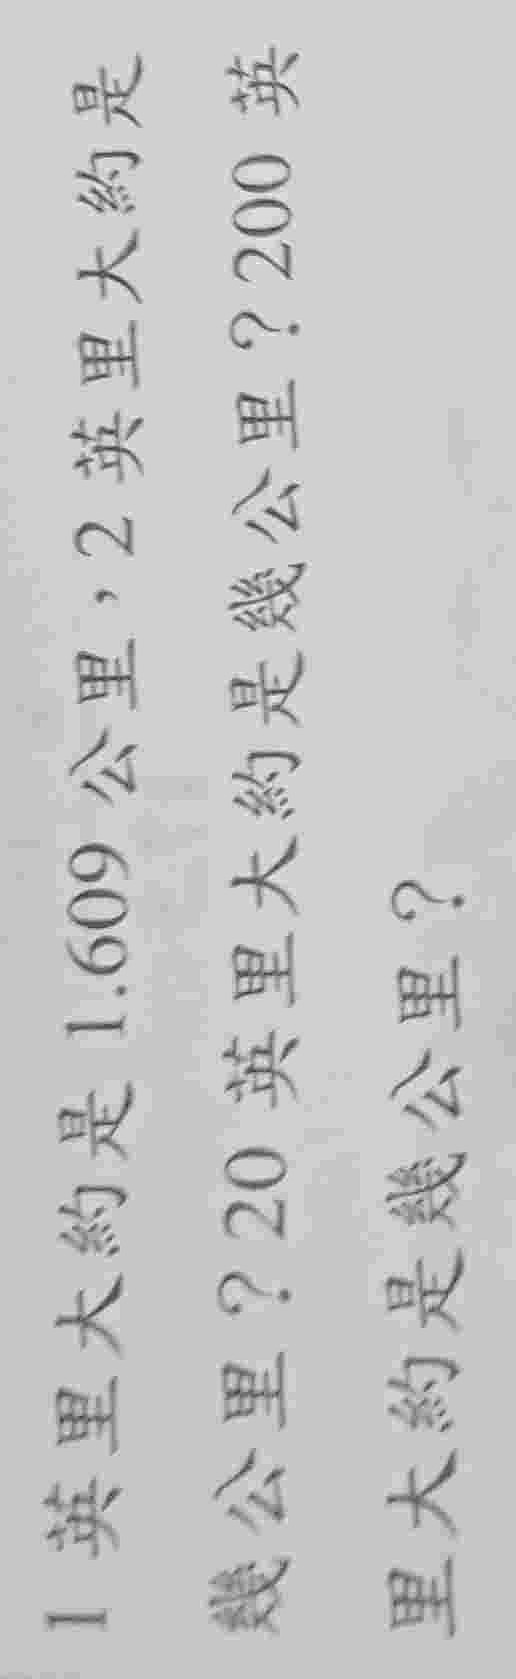 1 英里大約是 1.609 公里，2 英里大約是
幾公里？20 英里大約是幾公里？200 英
里大約是幾公里？